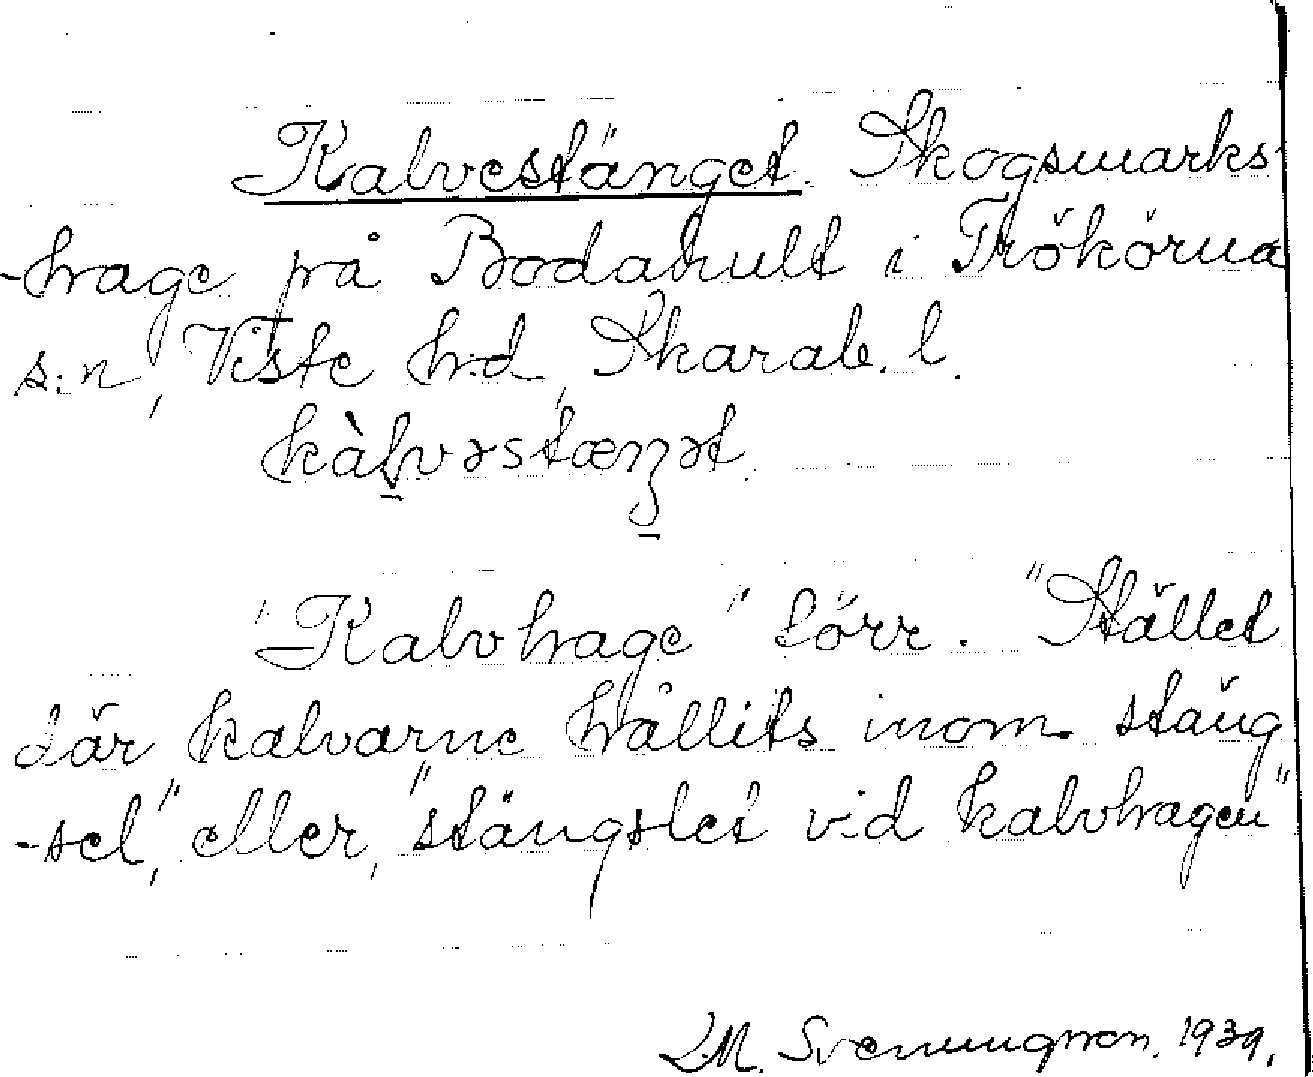 Kalvestänget. Skogsmarks-
-hage på Bodahult i Trökörna
s:n, Viste h:d, Skarab. l.
kàlvəstæŋət.
"Kalvhage" förr. "Stället
där kalvarne hållits inom stäng
-sel", eller, "stängslet vid kalvhagen"
L.M. Svenungsson. 1939.